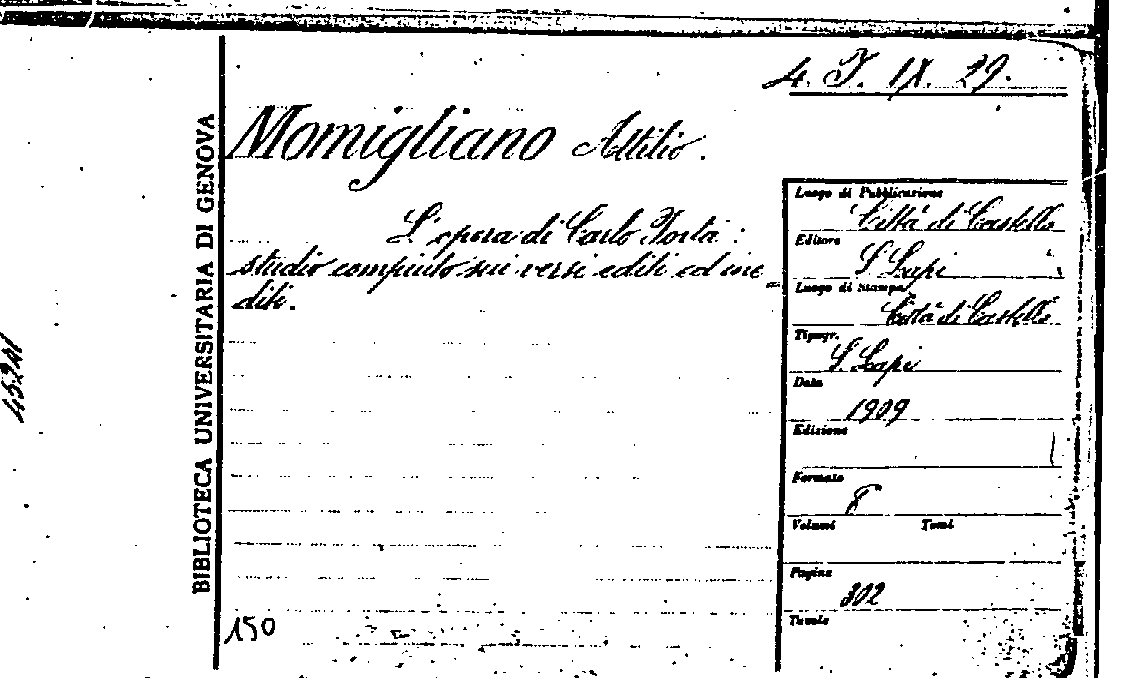 4. T. IX. 29.
Momigliano Attilio.
L'opera di Carlo Porta :
studio compiuto sui versi editi ed ine_
diti.
150
BIBLIOTECA UNIVERSITARIA DI GENOVA
45241
Luogo di Pubblicazione
Città di Castello
Editore
S. Lapi
Luogo di Stampa
Città di Castello
Tipogr.
S. Lapi
Data
1909
Edizione
Formato
8°
Volumi Tomi
Pagine
302
Tavole